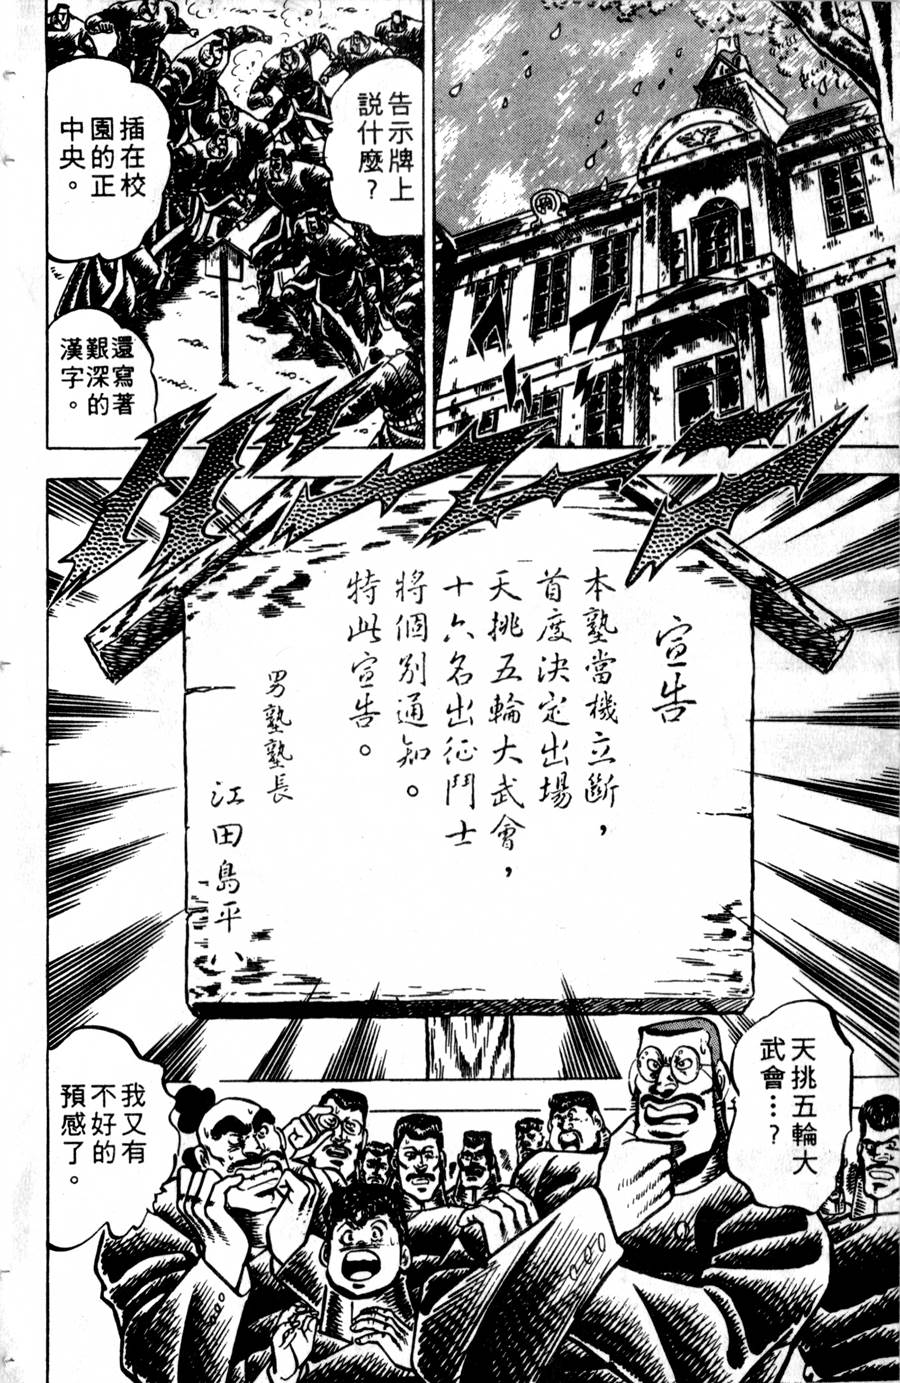 告示牌上
說什麼?
插在校
園的正
中央。
還寫著
艱深的
漢字。
宣告
本塾當機立斷，
首度決定出場
天挑五輪大武會，
十六名出征鬥士
將個別通知。
特此宣告。
男塾塾長
江田島平八
天挑五輪大
武會…?
我又有
不好的
預感了。